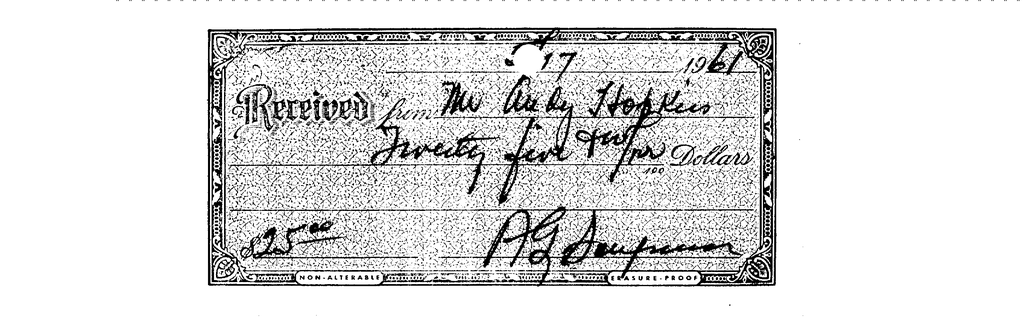 17 1961
Received from Mr Andy Hopkins
Twenty five &
100 Dollars
$25.00
NON-ALTERABLE ERASURE-PROOF